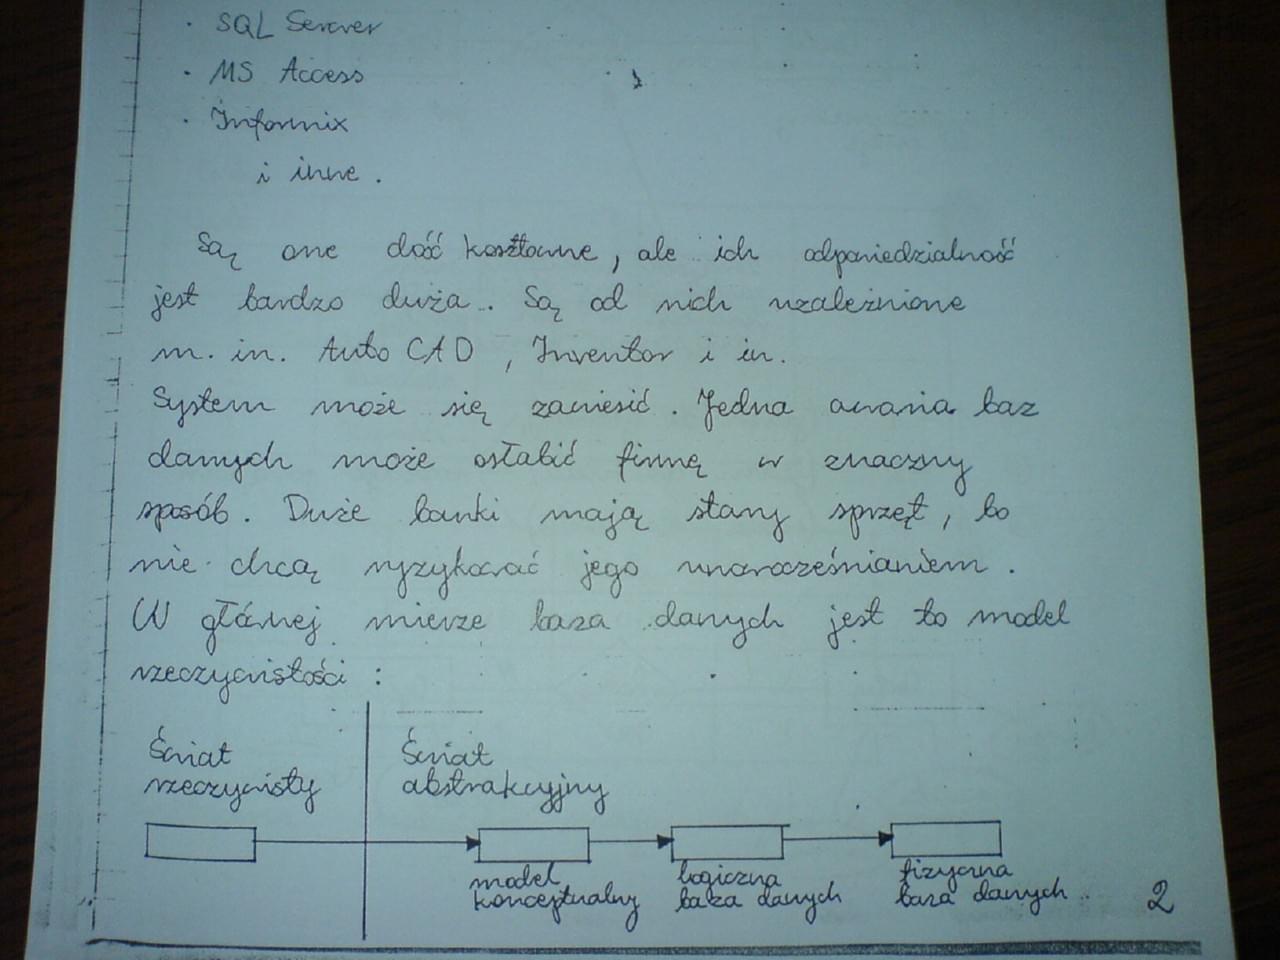 · SQL Server
· MS Access
· Informix
i inne.
Są one dość kosztowne, ale ich odpowiedzialność
jest bardzo duża. Są od nich uzależnione
m. in. Auto CAD, Inventor i in.
System może się zawiesić. Jedna awaria baz
danych może osłabić firmę w znaczny
sposób. Duże banki mają stary sprzęt, bo
nie chcą ryzykować jego unowocześnianiem.
W głównej mierze baza danych jest to model
rzeczywistości:
Świat Świat
rzeczywisty abstrakcyjny
model logiczna fizyczna
konceptualny baza danych baza danych
2